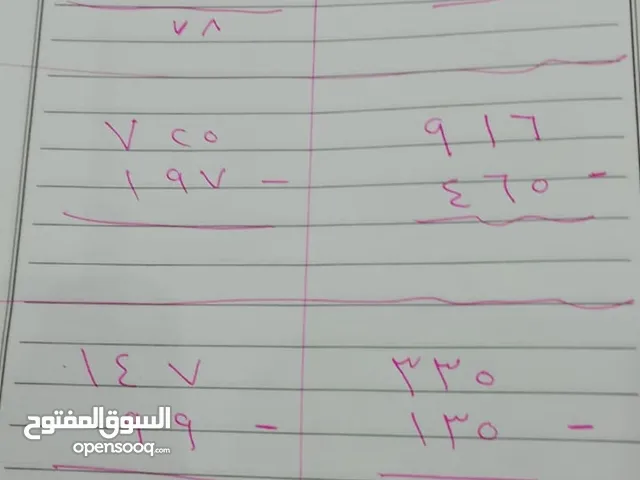 ٧٨
٩١٦
٤٦٥ -
٧٢٥
١٩٧ -
٣٣٥
١٣٥ -
١٤٧
٩٩ -
السوق المفتوح
opensooq.com